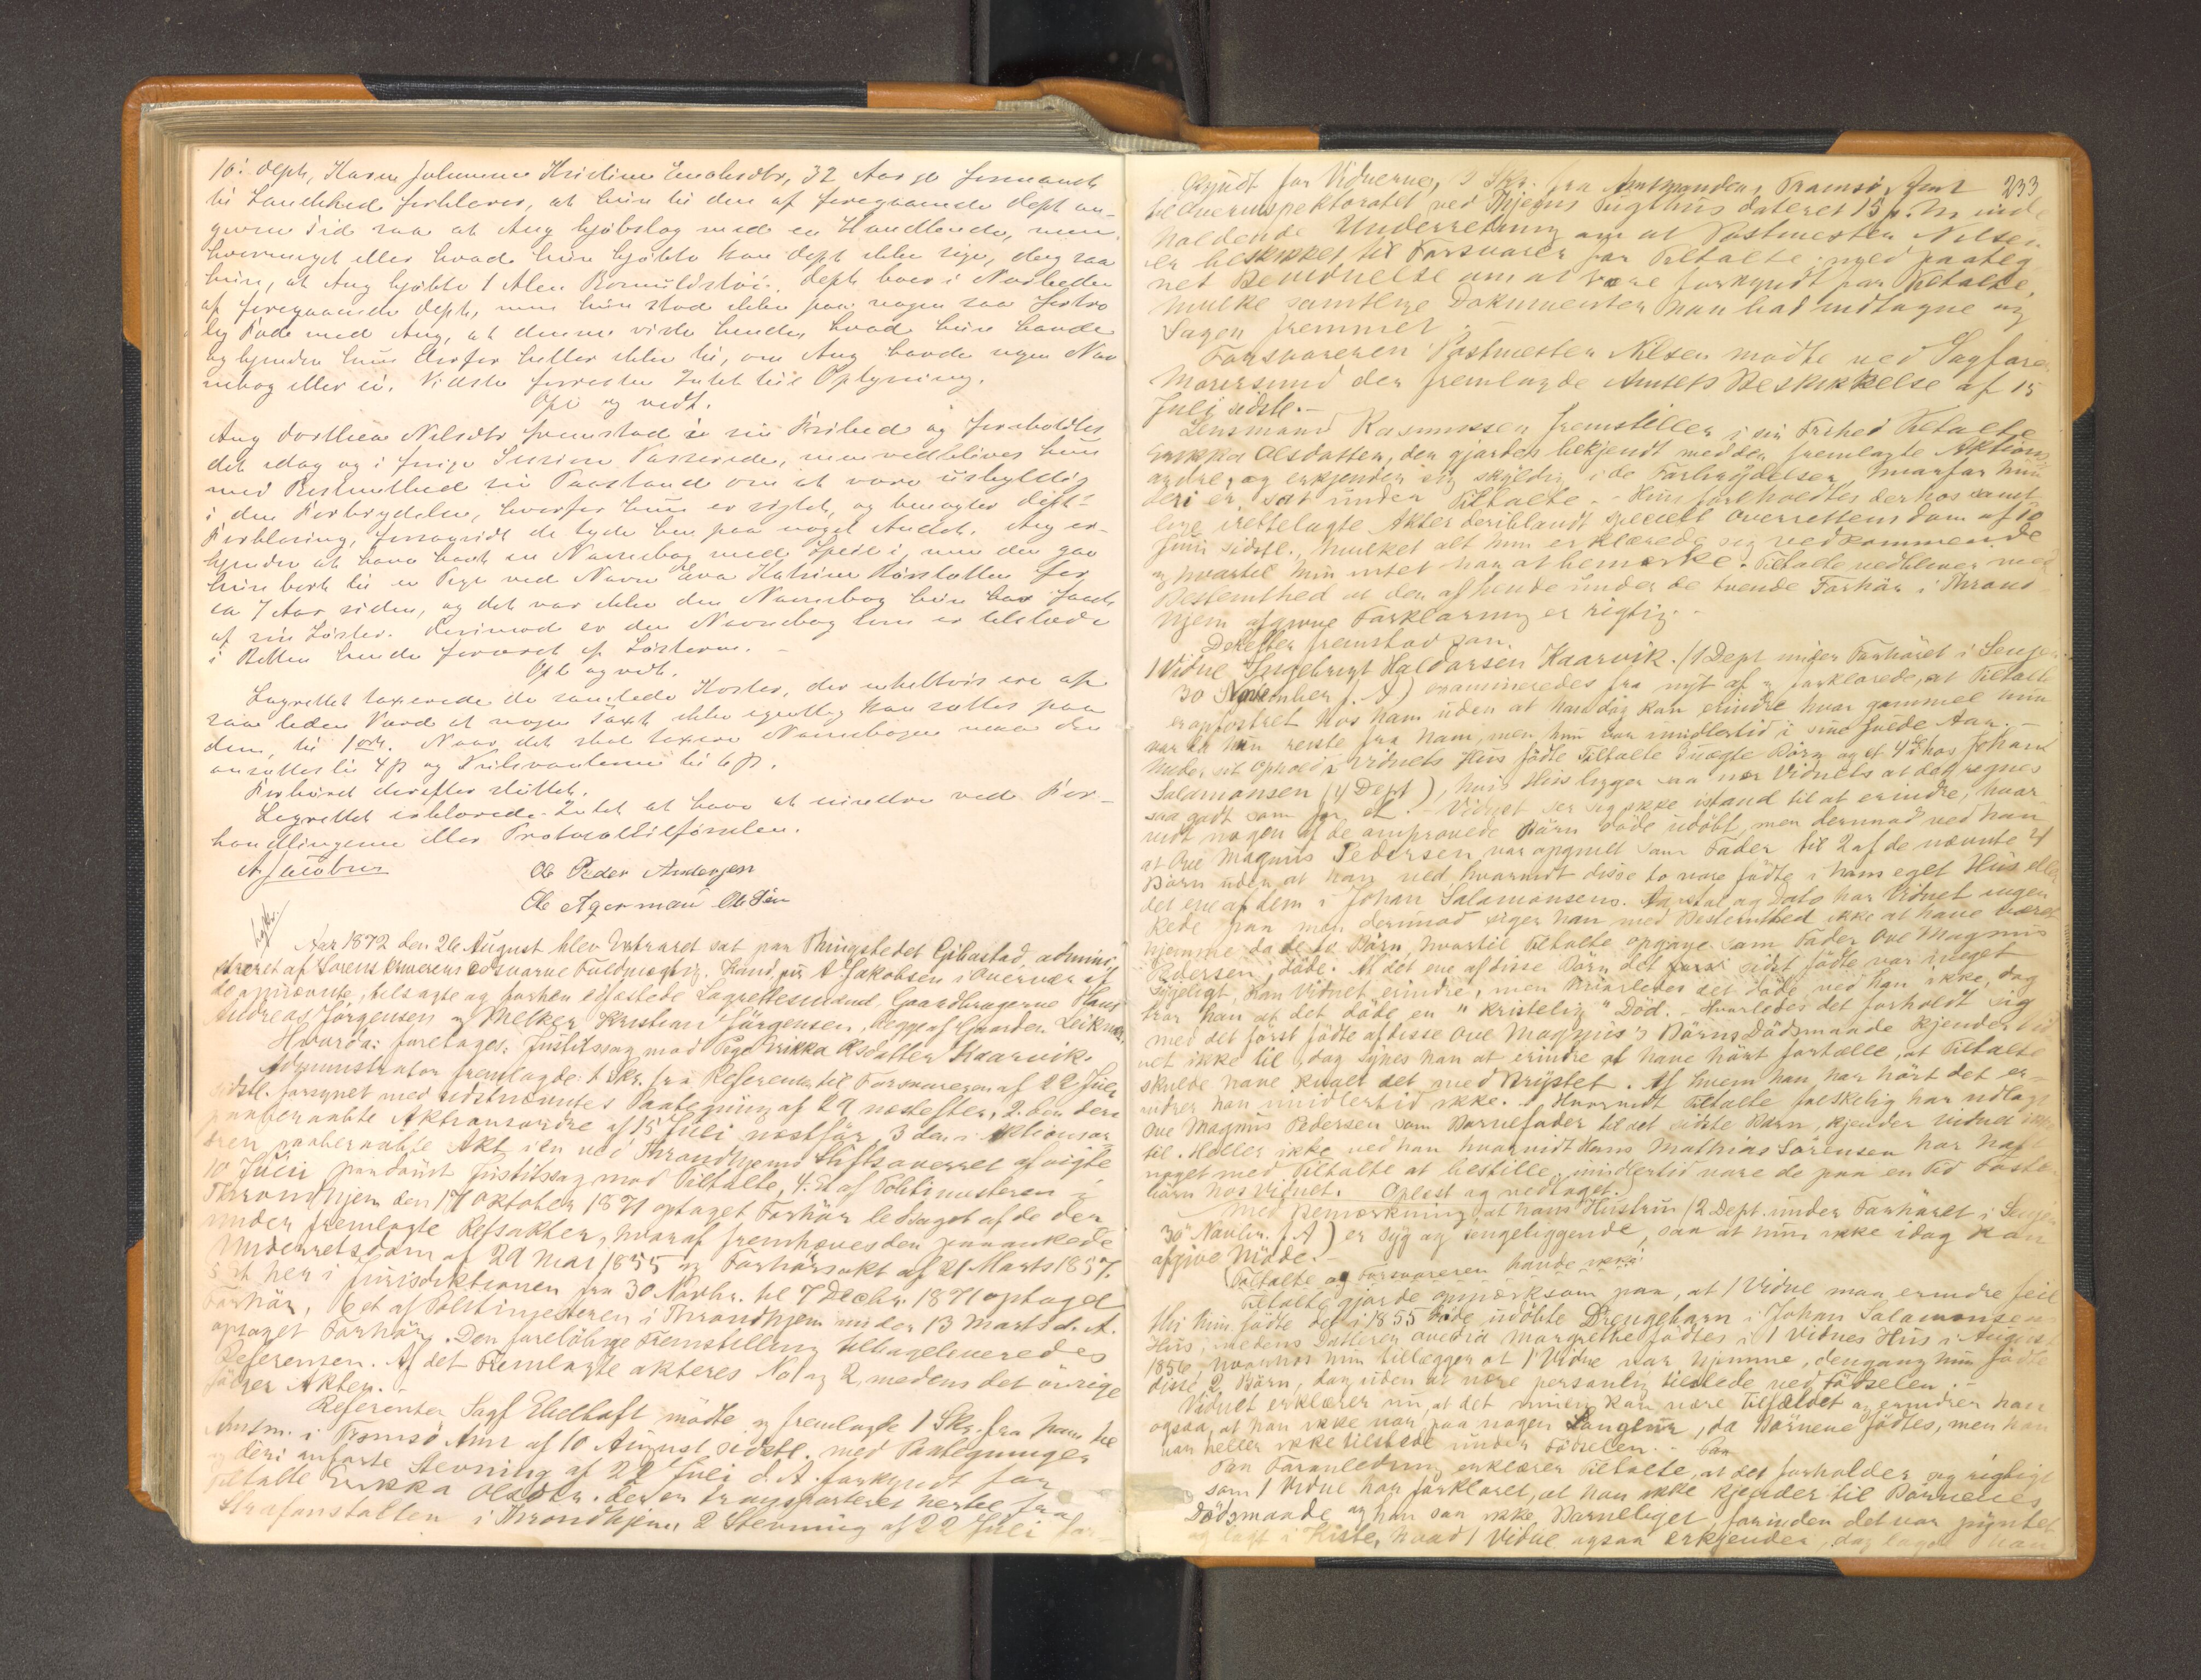 10: Dept, Karen Johanna Kristine Enoksdtr, 32 Aar gl formanet
til Sandhed forklarer, at hun til den af foregaaende Dept an-
given Tid saa at Ang kjöbslog med en Handlende, men
hvormeget eller hvad hun kjöbte kan Dept ikke sige, dog saa
hun, at Ang kjöbte 1 Alen Bomuldstöi. Dept boer i Nærheden
af foregaaende Dept, men hun stod ikke paa nogen saa fortro
lig Fod med Ang, at denne viste hende, hvad hun havde
og kjender hun derfor heller ikke til, om Ang havde nogen Nav
nebog eller ei. Vidste forresten Intet til Oplysning.
Opl og vedt.
Ang Dorthea Nilsdtr fremstod i sin Frihed og foreholdtes
det idag og i forrige Session Passerede, men vedbliver hun
med Bestemthed sin Paastand om at være uskyldig
i den Forbrydelse, hvorfor hun er sigtet, og benegter Dept's
Forklaring, forsaavidt de tyde hen paa noget Andet. Ang er-
kjender at have havt en Navnebog med Speil i, men den gav
hun bort til en Pige ved Navn Eva Katrine Karsdatter for
ca 7 Aar siden, og det var ikke den Navnebog hun har faaet
af sin Søster. Derimod er den Navnebog som er tilstede
i Retten hende foræret af Søsteren. -
Opl og vedt.
Lagrettet taxerede de samtlede Koster, der uheldvis ere af
saa liden Værd at nogen Taxt ikke egentlig kan sættes paa
dem, til 1 ort. Naar det skal taxere Navnebogen maa den
ansættes til 4 ß og til 6 ß.
Forhöret derefter sluttet.
Lagrettet erklærede Intet at have at erindre ved For-
handlingerne eller Protocoltilførselen.
A Jacobsen Ole Peder Andersen
Ole Agerman Olsen
Aar 1872 den 26 August blev Extraret sat paa Thingstedet Gibostad, admini-
streret af Sorenskriverens edsvorne Fuldmægtig. Kand. jur A. Jakobsen i Overvær af
de opnævnte, tilsagte og forhen edfæstede Lagrettesmænd, Gaardbrugerne Hans
Andreas Jörgensen og Melker Kristian Jörgensen, begge af Gaarden Leiknes.
Hvorda: foretages: Justitssag mod Pige Erikka Olsdatter Kaarvik.
Administrator fremlagde: 1 Skr. fra Referenten til Forsvareren af 22 Juli
sidstl. forsynet med sidstnævntes Paategning af 29 næstefter, 2. den deri
paaberaabte Aktionsordre af 15 Juli næstfør, 3 den i Aktionsor
dren paaberaabte Akt i en ved Throndhjems Stiftsoverret afvigte
10 Juni paadömt Justitssag mod Tiltalte, 4. Et af Politimesteren i
Throndhjem den 17 Oktober 1871 optaget Forhör ledsaget af de der
under fremlagte Retsakter, hvoraf fremhæves den paaankede
Underretsdom af 29 Mai 1855 og Forhörsakt af 21 Marts 1857.
5 et her i Jurisdiktionen fra 30 Novbr. til 7 Decbr. 1871 optaget
Forhör, 6 et af Politimesteren i Throndhjem under 13 Marts d. A.
optaget Forhör. Den foreløbige Fremstilling tilbageleveredes
Referenten. Af det Fremlagte akteres No 1 og 2, medens det övrige
følger Akten. -
Referenten Sagf Ebeltoft mödte og fremlagde 1 Skr. fra ham til
Amtm. i Tromsö Amt af 10 August sidstl. med Paategninger
og deri anførte Stevning af 22 Juli d. A. forkyndt for
Tiltalte Erikka Olsdtr. der er transporteret hertil fra
Strafanstalten i Throndhjem, 2 Stevning af 22 Juli for-
233
kyndt for Vidnerne, 3 Skr. fra Amtmanden i Tromsö Amt
til Overinspektoratet ved Thjems Tugthus dateret 15 p. M. inde
holdende Underretning om at Postmester Nilsen
er beskikket til Forsvarer for Tiltalte; med paateg
net Bevidnelse om at være forkyndt for Tiltalte,
hvilke samtlige Dokumenter han bad indtagne og
Sagen fremmet. -
Forsvareren Postmester Nilsen mödte ved Sagfører
Moursund der fremlagde Amtets Beskikkelse af 15
Juli sidstl. -
Lensmand Rasmussen fremstiller i sin Frihed Tiltalte
Erikka Olsdatter, der gjordes bekjendt med den fremlagte Aktions
ordre, og erkjender sig skyldig i de Forbrydelser, hvorfor hun
deri er sat under Tiltale. - Hun foreholdtes derhos samt
lige irettelagte Akter deriblandt specielt Overrettens Dom af 10
Juni sidstl., hvilket alt hun erklærede sig vedkommende
og hvortil hun intet har at bemærke. Tiltalte vedbliver med
Bestemthed at den af hende under de tvende Forhör i Thrond
hjem afgivne Forklaring er rigtig. -
Derefter fremstod som
1 Vidne Ingebrigt Haldorsen Kaarvik. (1 Dept under Forhöret i Senjen
30 November f. A) examineredes fra nyt af og forklarede, at Tiltalte
er opfostret hos ham uden at han dog kan erindre hvor gammel hun
var da hun reiste fra ham, men hun var imidlertid i sine fulde Aar. -
Under sit Ophold i Vidnets Hus födte Tiltalte 3 uægte Börn og et 4de hos Johan
Salamonsen (4 Dept), hvis Hus ligger saa nær Vidnets at det regnes
saa godt som for et. - Vidnet ser sig ikke istand til at erindre, hvor
vidt nogen af de omprövede Börn döde udöbt, men derimod ved han
at Ole Magnus Pedersen var opgivet som Fader til 2 af de nævnte 4
Börn uden at han ved hvorvidt disse to vare födte i hans eget Hus eller
det ene af dem i Johan Salamonsens. Aarstal og Dato har Vidnet ingen
Rede paa men derimod siger han med Bestemthed ikke at have været
hjemme da de to Börn, hvortil Tiltalte opgave som Fader Ove Magnus
Pedersen, döde. At det ene af disse Börn det sidst födte var meget
sygeligt, kan Vidnet erindre, men hvorledes det döde ved han ikke, dog
tror han at det döde en "kristelig" Död. - Hvorledes det forholdt sig
med det först födte af disse Ove Magnus's Börns Dödsmaade kjender Vid
net ikke til, dog synes han at erindre at have hört fortælle, at Tiltalte
skulde have kvalt det med Brystet. Af hvem han har hört det er-
indrer han imidlertid ikke. - Hvorvidt Tiltalte falskelig har udlagt
Ove Magnus Pedersen som Barnefader til det sidste Barn, kjender Vidnet ikke
til. Heller ikke ved han hvorvidt Hans Mathias Sörensen har havt
noget med Tiltalte at bestille, imidlertid vare de paa en Tid Foster
börn hos Vidnet. Oplest og vedtaget.
Med Bemærkning, at hans Hustru (2 Dept. under Forhöret i Senjen
30 Novbr. f. A) er syg og sengeliggende, saa at hun ikke idag kan
afgive Möde. -
Tiltalte og Forsvareren havde
Tiltalte gjorde opmærksom paa, at 1 Vidne maa erindre feil
thi hun födte det i 1855 döde udöbte Drengebarn i Johan Salamonsens
Hus, medens Datteren Ovedia Margrethe födtes i 1 Vidnes Hus i August
1856, hvorhos hun tillægger at 1 Vidne var hjemme, dengang hun födte
disse 2 Börn, dog uden at være personlig tilstede ved Födselen. -
Vidnet erklærer nu, at det kan være Tilfældet og erindrer han
ogsaa, at han ikke var paa nogen Langtur, da Börnene födtes, men han
var heller ikke tilstede under Födselen. -
Paa Foranledning erklærer Tiltalte, at det forholder sig rigtigt
som 1 Vidne har forklaret, at han ikke kjender til Börnenes
Dödsmaade og han saa ikke Barneliget, forinden det var pyntet
og lagt i Kiste, hvad 1 Vidne ogsaa erkjender, dog han